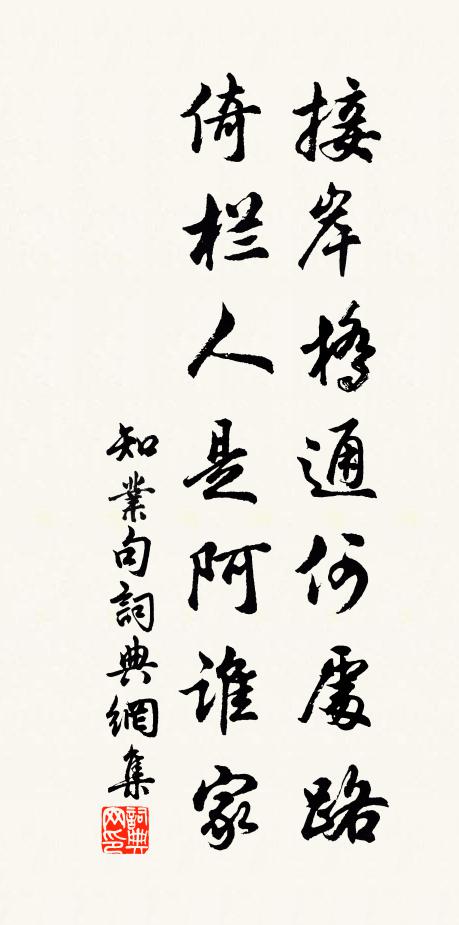 接岸橋通何處路
倚栏人是阿誰家
知業句詞典網集
詞典
网印